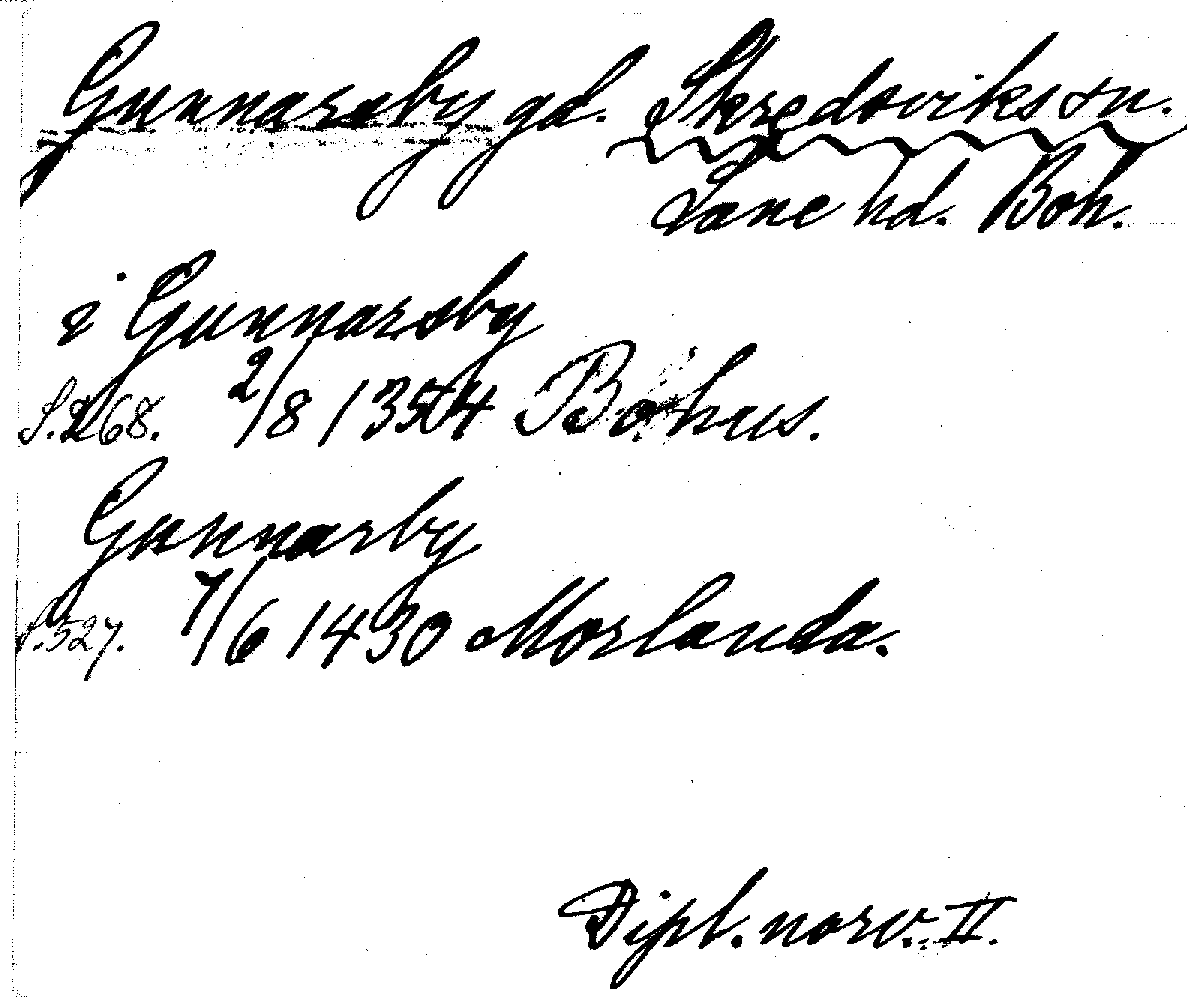 Gunnarsby gd. Skredsviks sn.
Lane hd. Boh.
i Gunnarsby
S. 268. 2/8 1354 Bohus.
Gunnarby
S. 527. 7/6 1430 Morlanda.
Dipl. norv. II.